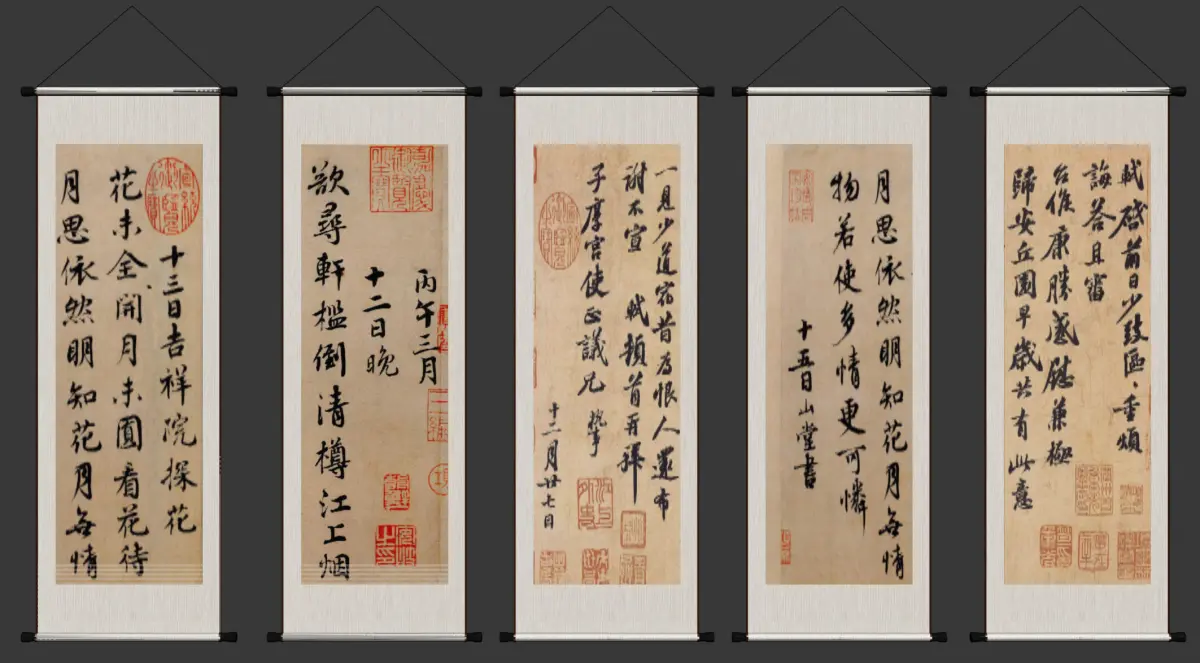 軾啓前日少致區、重煩
誨荅且審
台候康勝感慰兼極
歸安丘園早歲共有此意
月思依然明知花月無情
物若使多情更可憐
十五日山堂書
一見少道宿昔爲恨人還布
謝不宣 軾頓首再拜
子厚宮使正議兄 執事
十二月廿七日
丙午三月
十二日晚
欲尋軒檻倒清樽江上烟
十三日吉祥院探花
花未全開月未圓看花待
月思依然明知花月無情